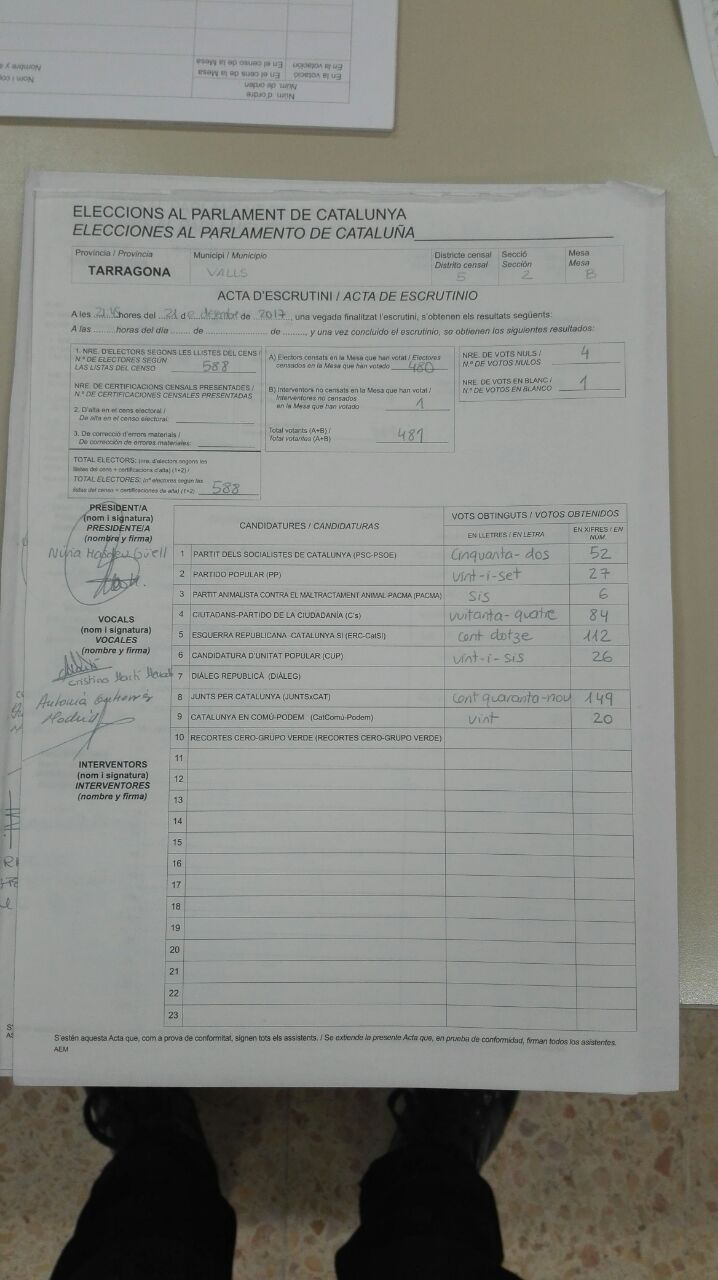 Nombre y
Nom i co
En la votación
En la votació
En el censo de la Mesa
En el cens de la Mesa
Núm. de orden
Núm. d'ordre
ELECCIONS AL PARLAMENT DE CATALUNYA
ELECCIONES AL PARLAMENTO DE CATALUÑA
Provincia / Provincia
TARRAGONA
Municipi / Municipio
VALLS
Districte censal
Distrito censal
5
Secció
Sección
2
Mesa
Mesa
B
ACTA D'ESCRUTINI / ACTA DE ESCRUTINIO
A les 21:45 hores del 21 de desembre de 2017, una vegada finalitzat l'escrutini, s'obtenen els resultats següents:
A las ........ horas del día ....... de .......................... de ........, y una vez concluido el escrutinio, se obtienen los siguientes resultados:
1. NRE. D'ELECTORS SEGONS LES LLISTES DEL CENS /
N.º DE ELECTORES SEGÚN
LAS LISTAS DEL CENSO 588
NRE. DE CERTIFICACIONS CENSALS PRESENTADES /
N.º DE CERTIFICACIONES CENSALES PRESENTADAS
2. D'alta en el cens electoral /
De alta en el censo electoral:
3. De correcció d'errors materials /
De corrección de errores materiales:
TOTAL ELECTORS: (nre. d'electors segons les
llistes del cens + certificacions d'alta) (1+2) /
TOTAL ELECTORES: (nº electores según las
listas del censo + certificaciones de alta) (1+2) 588
A) Electors censats en la Mesa que han votat / Electores
censados en la Mesa que han votado 480
B) Interventors no censats en la Mesa que han votat /
Interventores no censados
en la Mesa que han votado 1
Total votants (A+B) /
Total votantes (A+B) 481
NRE. DE VOTS NULS /
N.º DE VOTOS NULOS 4
NRE. DE VOTS EN BLANC /
N.º DE VOTOS EN BLANCO 1
PRESIDENT/A
(nom i signatura)
PRESIDENTE/A
(nombre y firma)
Núria
Güell
VOCALS
(nom i signatura)
VOCALES
(nombre y firma)
Cristina Martí
Antonia Gutierrez
INTERVENTORS
(nom i signatura)
INTERVENTORES
(nombre y firma)
CANDIDATURES / CANDIDATURAS
VOTS OBTINGUTS / VOTOS OBTENIDOS
EN LLETRES / EN LETRA
EN XIFRES / EN NÚM.
1 PARTIT DELS SOCIALISTES DE CATALUNYA (PSC-PSOE) Cinquanta-dos 52
2 PARTIDO POPULAR (PP) vint-i-set 27
3 PARTIT ANIMALISTA CONTRA EL MALTRACTAMENT ANIMAL-PACMA (PACMA) sis 6
4 CIUTADANS-PARTIDO DE LA CIUDADANÍA (C's) vuitanta-quatre 84
5 ESQUERRA REPUBLICANA -CATALUNYA SÍ (ERC-CatSí) cent dotze 112
6 CANDIDATURA D'UNITAT POPULAR (CUP) vint-i-sis 26
7 DIÀLEG REPUBLICÀ (DIÀLEG)
8 JUNTS PER CATALUNYA (JUNTSxCAT) cent quaranta-nou 149
9 CATALUNYA EN COMÚ-PODEM (CatComú-Podem) vint 20
10 RECORTES CERO-GRUPO VERDE (RECORTES CERO-GRUPO VERDE)
11
12
13
14
15
16
17
18
19
20
21
22
23
S'estén aquesta Acta que, com a prova de conformitat, signen tots els assistents. / Se extiende la presente Acta que, en prueba de conformidad, firman todos los asistentes.
AEM